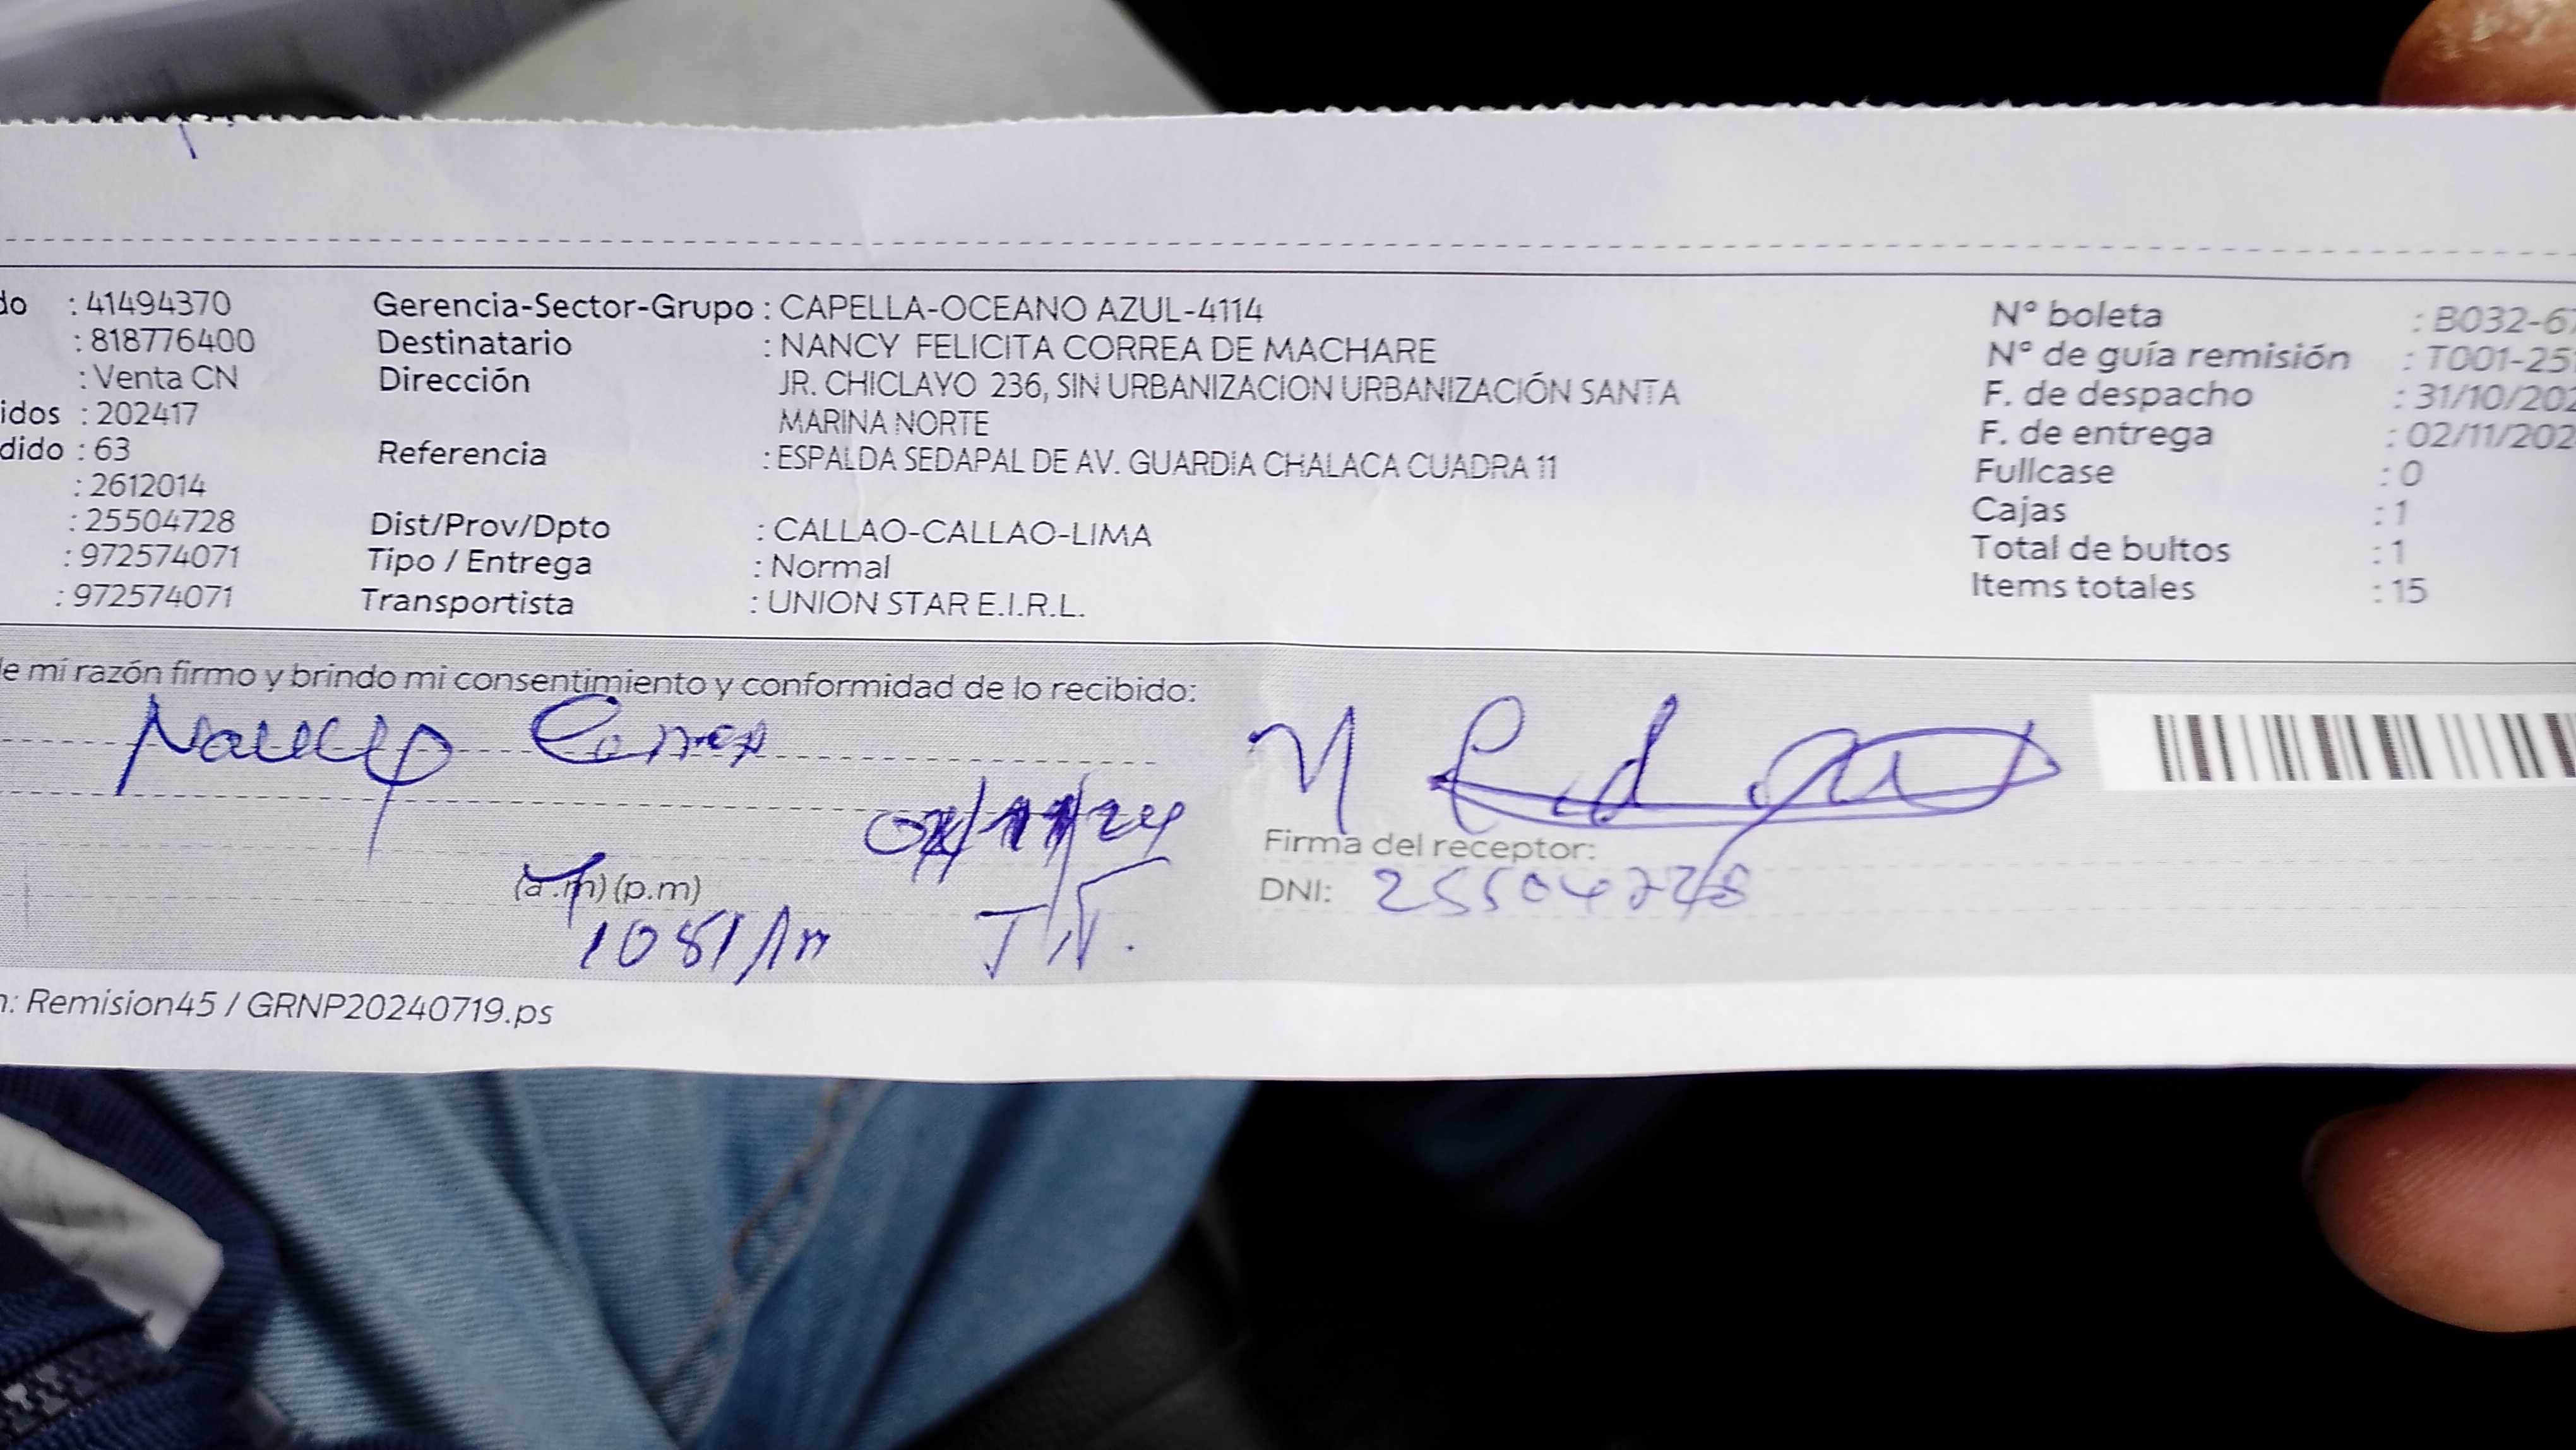 do : 41494370 Gerencia-Sector-Grupo : CAPELLA-OCEANO AZUL-4114 N° boleta : B032-67
: 818776400 Destinatario : NANCY FELICITA CORREA DE MACHARE N° de guía remisión : T001-25
: Venta CN Dirección JR. CHICLAYO 236, SIN URBANIZACION URBANIZACIÓN SANTA F. de despacho : 31/10/202
idos : 202417 MARINA NORTE F. de entrega : 02/11/202
dido : 63 Referencia : ESPALDA SEDAPAL DE AV. GUARDIA CHALACA CUADRA 11 Fullcase : 0
: 2612014 Cajas : 1
: 25504728 Dist/Prov/Dpto : CALLAO-CALLAO-LIMA Total de bultos : 1
: 972574071 Tipo / Entrega : Normal Items totales : 15
: 972574071 Transportista : UNION STAR E.I.R.L.
de mi razón firmo y brindo mi consentimiento y conformidad de lo recibido:
Nancy Correa
/11/24
Firma del receptor:
(a.m) (p.m) DNI: 25504728
T/N.
n: Remision45 / GRNP20240719.ps